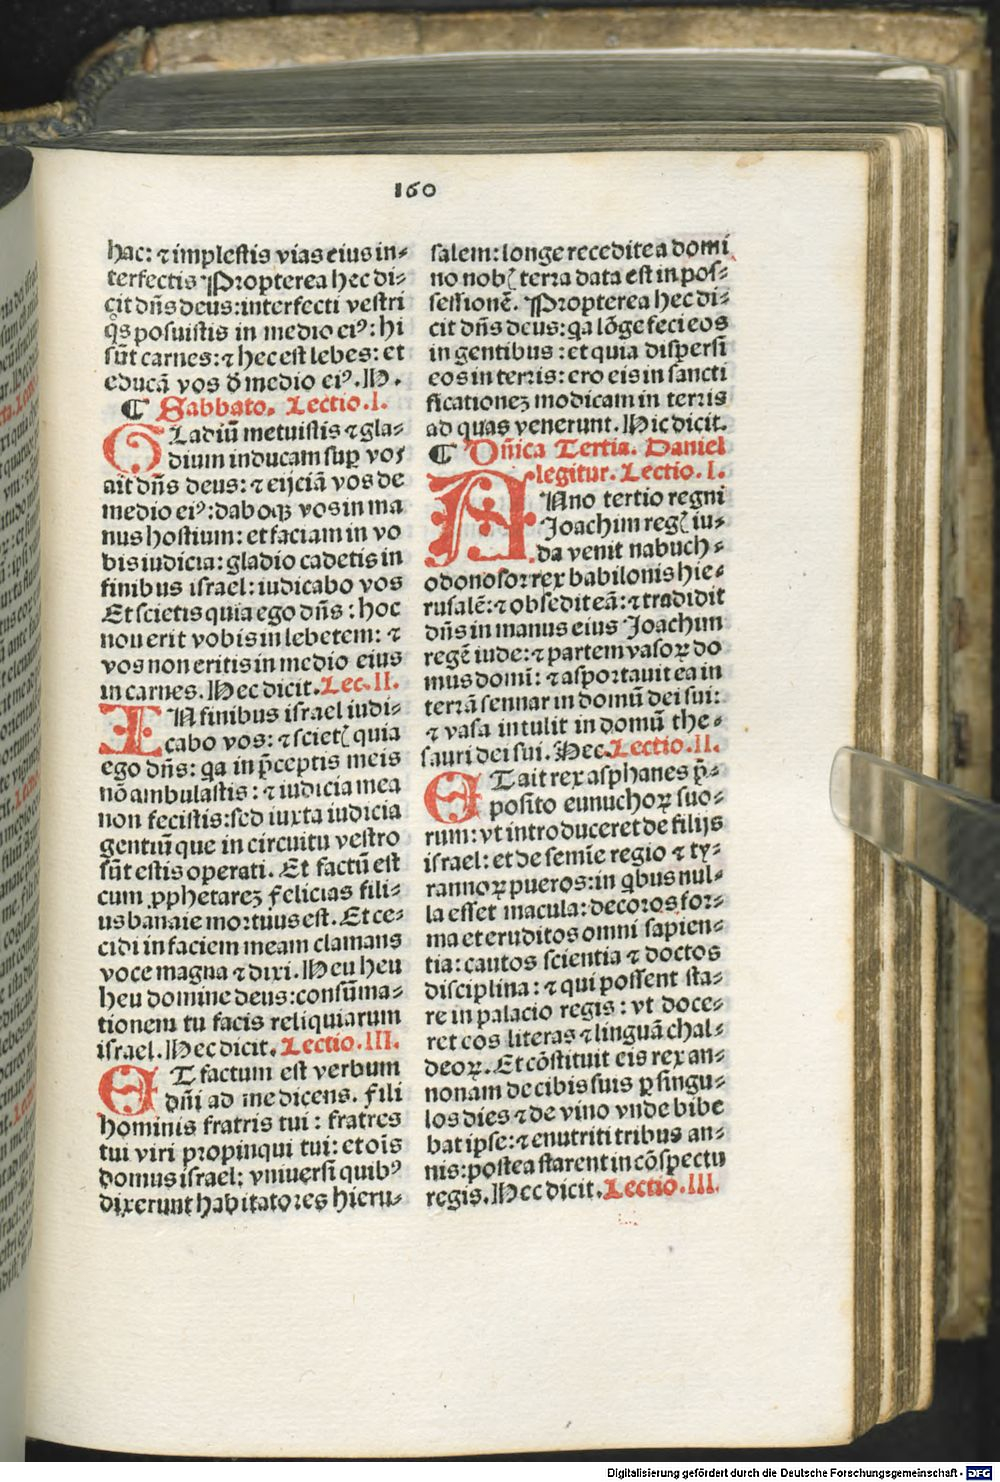 160
hac: ⁊ implestis vias eius in⸗
terfectis Propterea hec di⸗
cit dn̄s deus: interfecti vestri
qͦs posuistis in medio eiꝰ: hi
sūt carnes: ⁊ hec est lebes: et
educā vos đ medio eiꝰ. H.
¶ Sabbato. Lectio. I.
GLadiū metuistis ⁊ gla⸗
dium inducam suꝑ vos
ait dn̄s deus: ⁊ eijciā vos de
medio eiꝰ: daboqꝫ vos in ma
nus hostium: et faciam in vo
bis iudicia: gladio cadetis in
finibus israel: iudicabo vos
Et scietis quia ego dn̄s: hoc
non erit vobis in lebetem: ⁊
vos non eritis in medio eius
in carnes. Hec dicit. Lec. II.
IN finibus israel iudi⸗
cabo vos: ⁊ scietꝭ quia
ego dn̄s: qa in p̄ceptis meis
nō ambulastis: ⁊ iudicia mea
non fecistis: sed iuxta iudicia
gentiū que in circuitu vestro
sūt estis operati. Et factū est
cum ꝓphetareꝫ felicias fili⸗
us banaie mortuus est. Et ce⸗
cidi in faciem meam clamans
voce magna ⁊ dixi. Heu heu
heu domine deus: consūma⸗
tionem tu facis reliquiarum
israel. Hec dicit. Lectio. III.
ET factum est verbum
dn̄i ad me dicens. fili
hominis fratris tui: fratres
tui viri propinqui tui: et oīs
domus israel: vniuersi quibꝰ
dixerunt habitatores hieru⸗
salem: longe recedite a domi
no nobꝭ terra data est in pos⸗
sessionē. Propterea hec di⸗
cit dn̄s deus: qa lōge feci eos
in gentibus: et quia dispersi
eos in terris: ero eis in sancti
ficationeꝫ modicam in terris
ad quas venerunt. Hic dicit.
¶ Dn̄ica Tertia. Daniel
legitur. Lectio. I.
ANno tertio regni
Joachim regꝭ iu⸗
da venit nabuch⸗
odonosor rex babilonis hie⸗
rusalē: ⁊ obsedit eā: ⁊ tradidit
dn̄s in manus eius Joachim
regē iude: ⁊ partem vasoꝝ do
mus domī: ⁊ asportauit ea in
terrā sennar in domū dei sui:
⁊ vasa intulit in domū the⸗
sauri dei sui. Hec. Lectio. II.
ET ait rex asphanes p̄⸗
posito eunuchoꝝ suo⸗
rum: vt introduceret de filijs
israel: et de semīe regio ⁊ ty⸗
rannoꝝ pueros: in qͥbus nul⸗
la esset macula: decoros for⸗
ma et eruditos omni sapien⸗
tia: cautos scientia ⁊ doctos
disciplina: ⁊ qui possent sta⸗
re in palacio regis: vt doce⸗
ret eos literas ⁊ linguā chal⸗
deoꝝ. Et cōstituit eis rex an⸗
nonam de cibis suis ꝑ singu⸗
los dies ⁊ de vino vnde bibe
bat ipse: ⁊ enutriti tribus an⸗
nis: postea starent in cōspectu
regis. Hec dicit. Lectio. III.
Digitalisierung gefördert durch die Deutsche Forschungsgemeinschaft - DFG